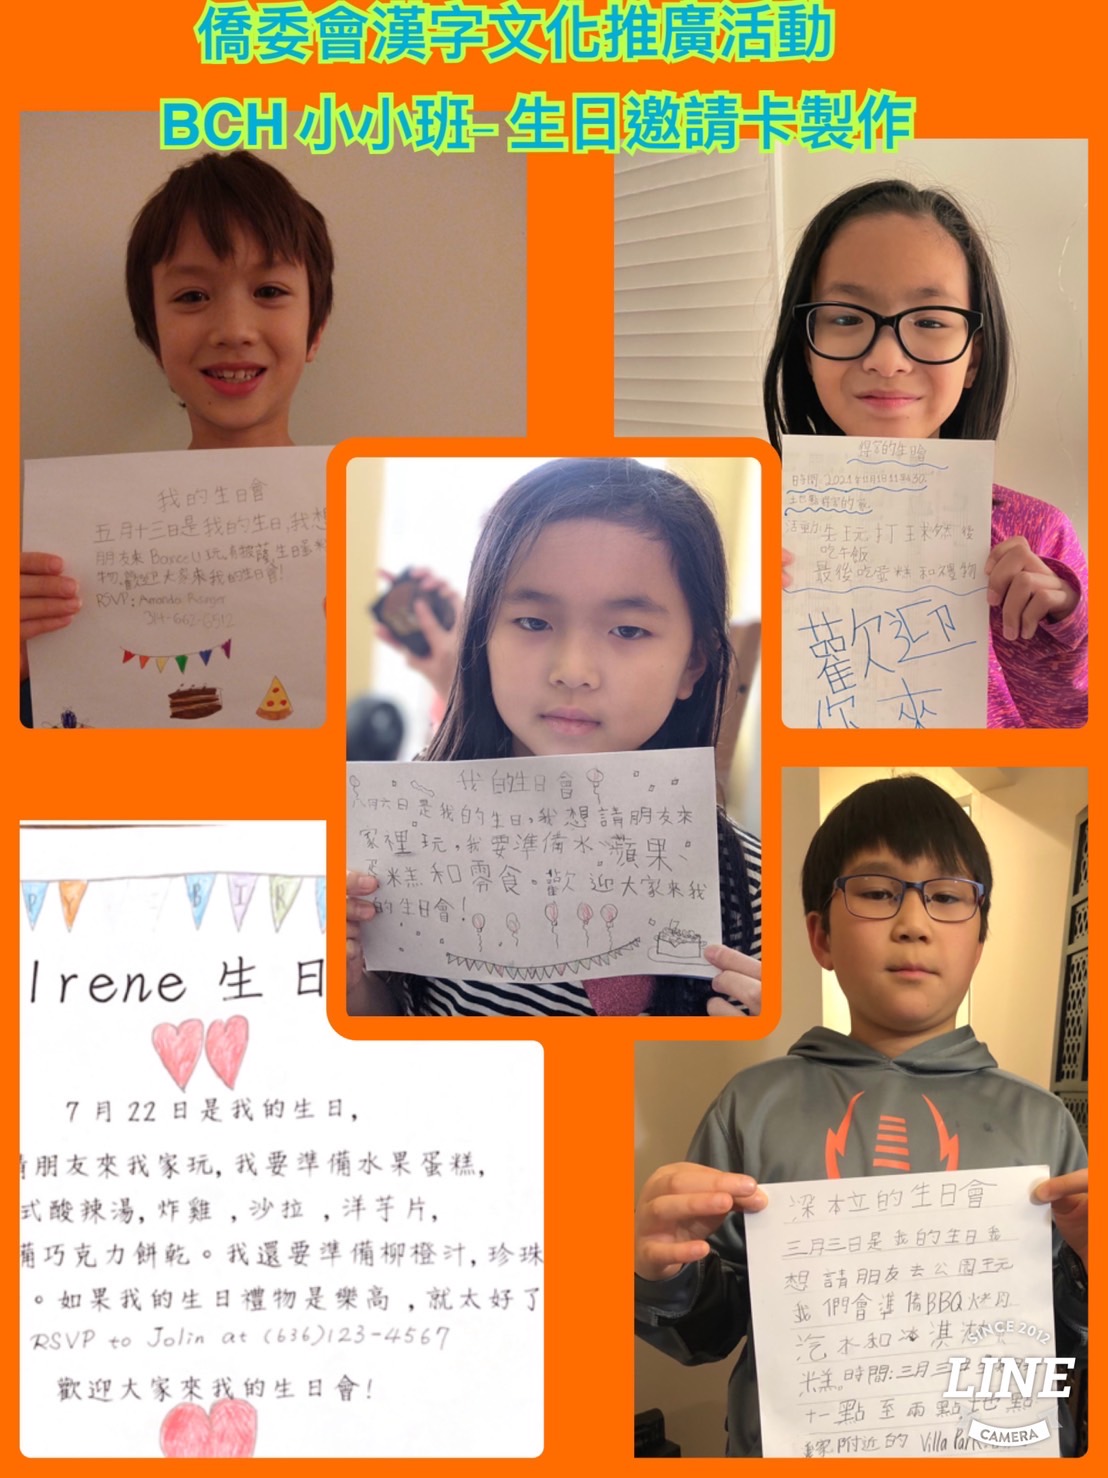 僑委會漢字文化推廣活動
BCH 小小班- 生日邀請卡製作
我的生日會
五月十三日是我的生日,我想
朋友來 Bounce U 玩,有披薩,生日蛋
物,歡迎大家來我的生日會!
RSVP: Amanda
的生日會
時間:2021年11月13日11點30
活動:先玩打球然後
吃午飯
最後吃蛋糕和禮物
歡迎
你來
我的生日會
八月六日是我的生日,我想請朋友來
家裡玩,我要準備水、蘋果、
糕和零食。歡迎大家來我
的生日會!
P Y B I R
Irene 生日
7月22日是我的生日,
朋友來我家玩,我要準備水果蛋糕,
式酸辣湯,炸雞,沙拉,洋芋片,
備巧克力餅乾。我還要準備柳橙汁,珍珠
。如果我的生日禮物是樂高,就太好了
RSVP to Jolin at (636)123-4567
歡迎大家來我的生日會!
梁本立的生日會
三月三日是我的生日我
想請朋友去公園玩
我們會準備BBQ烤肉
汽水和冰淇淋
糕。時間:三月三日
十一點至兩點,地點
家附近的 Villa Park
SINCE 2012
LINE
CAMERA